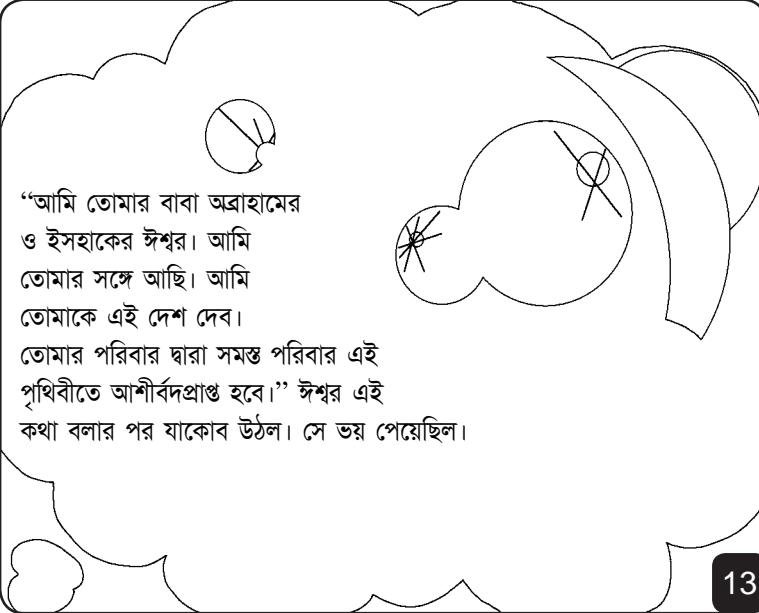 “আমি তোমার বাবা অব্রাহামের
ও ইসহাকের ঈশ্বর। আমি
তোমার সঙ্গে আছি। আমি
তোমাকে এই দেশ দেব।
তোমার পরিবার দ্বারা সমস্ত পরিবার এই
পৃথিবীতে আশীর্বদপ্রাপ্ত হবে।” ঈশ্বর এই
কথা বলার পর যাকোব উঠল। সে ভয় পেয়েছিল।
13